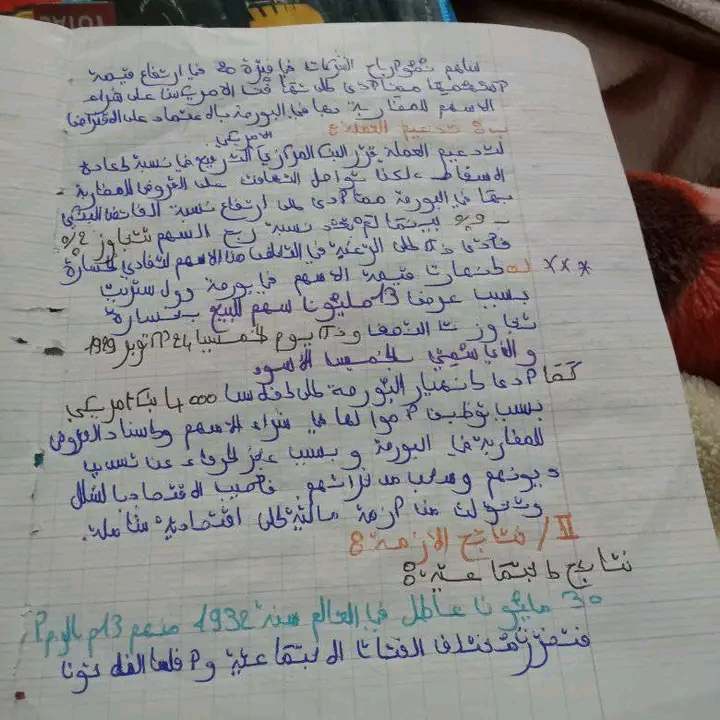 ساهم نمو أرباح الشركات في فترة 20 في ارتفاع قيمة
أسهمها مما أدى إلى تهافت الأمريكيين على شراء
الأسهم للمضاربة بها في البورصة بالاعتماد على الاقتراض
ب- تدعيم العملة:
الأمريكي
لتدعيم العملة قرر البنك المركزي الترفيع في نسبة إعادة
الإسقاط ولكن تواصل التهافت على القروض للمضاربة
بها في البورصة مما أدى إلى ارتفاع نسبة الفائض البنكي
9% بينما لم تعد نسبة ربح السهم تتجاوز 2%
فأدى ذلك إلى الرغبة في التخلص من الأسهم لتفادي الخسارة
*×× انهارت قيمة الأسهم في بورصة وول ستريت
بسبب عرض 13 مليون سهم للبيع بخسارة
تجاوزت النصف وذلك يوم الخميس 24 أكتوبر 1929
والذي سمي بالخميس الأسود
كما أدى انهيار البورصة إلى إفلاس 4000 بنك أمريكي
بسبب توظيف أموالها في شراء الأسهم وإسناد القروض
للمضاربة في البورصة وبسبب عجز الحرفاء عن تسديد
ديونهم وسحب مدخراتهم فأصيب الاقتصاد بالشلل
وتحولت من أزمة مالية إلى اقتصادية شاملة.
II/ نتائج الأزمة:
نتائج اجتماعية:
30 مليون عاطل في العالم سنة 1932 منهم 13م بالو م أ
فتضررت مختلف الفئات الاجتماعية وأفلس الفلاحون